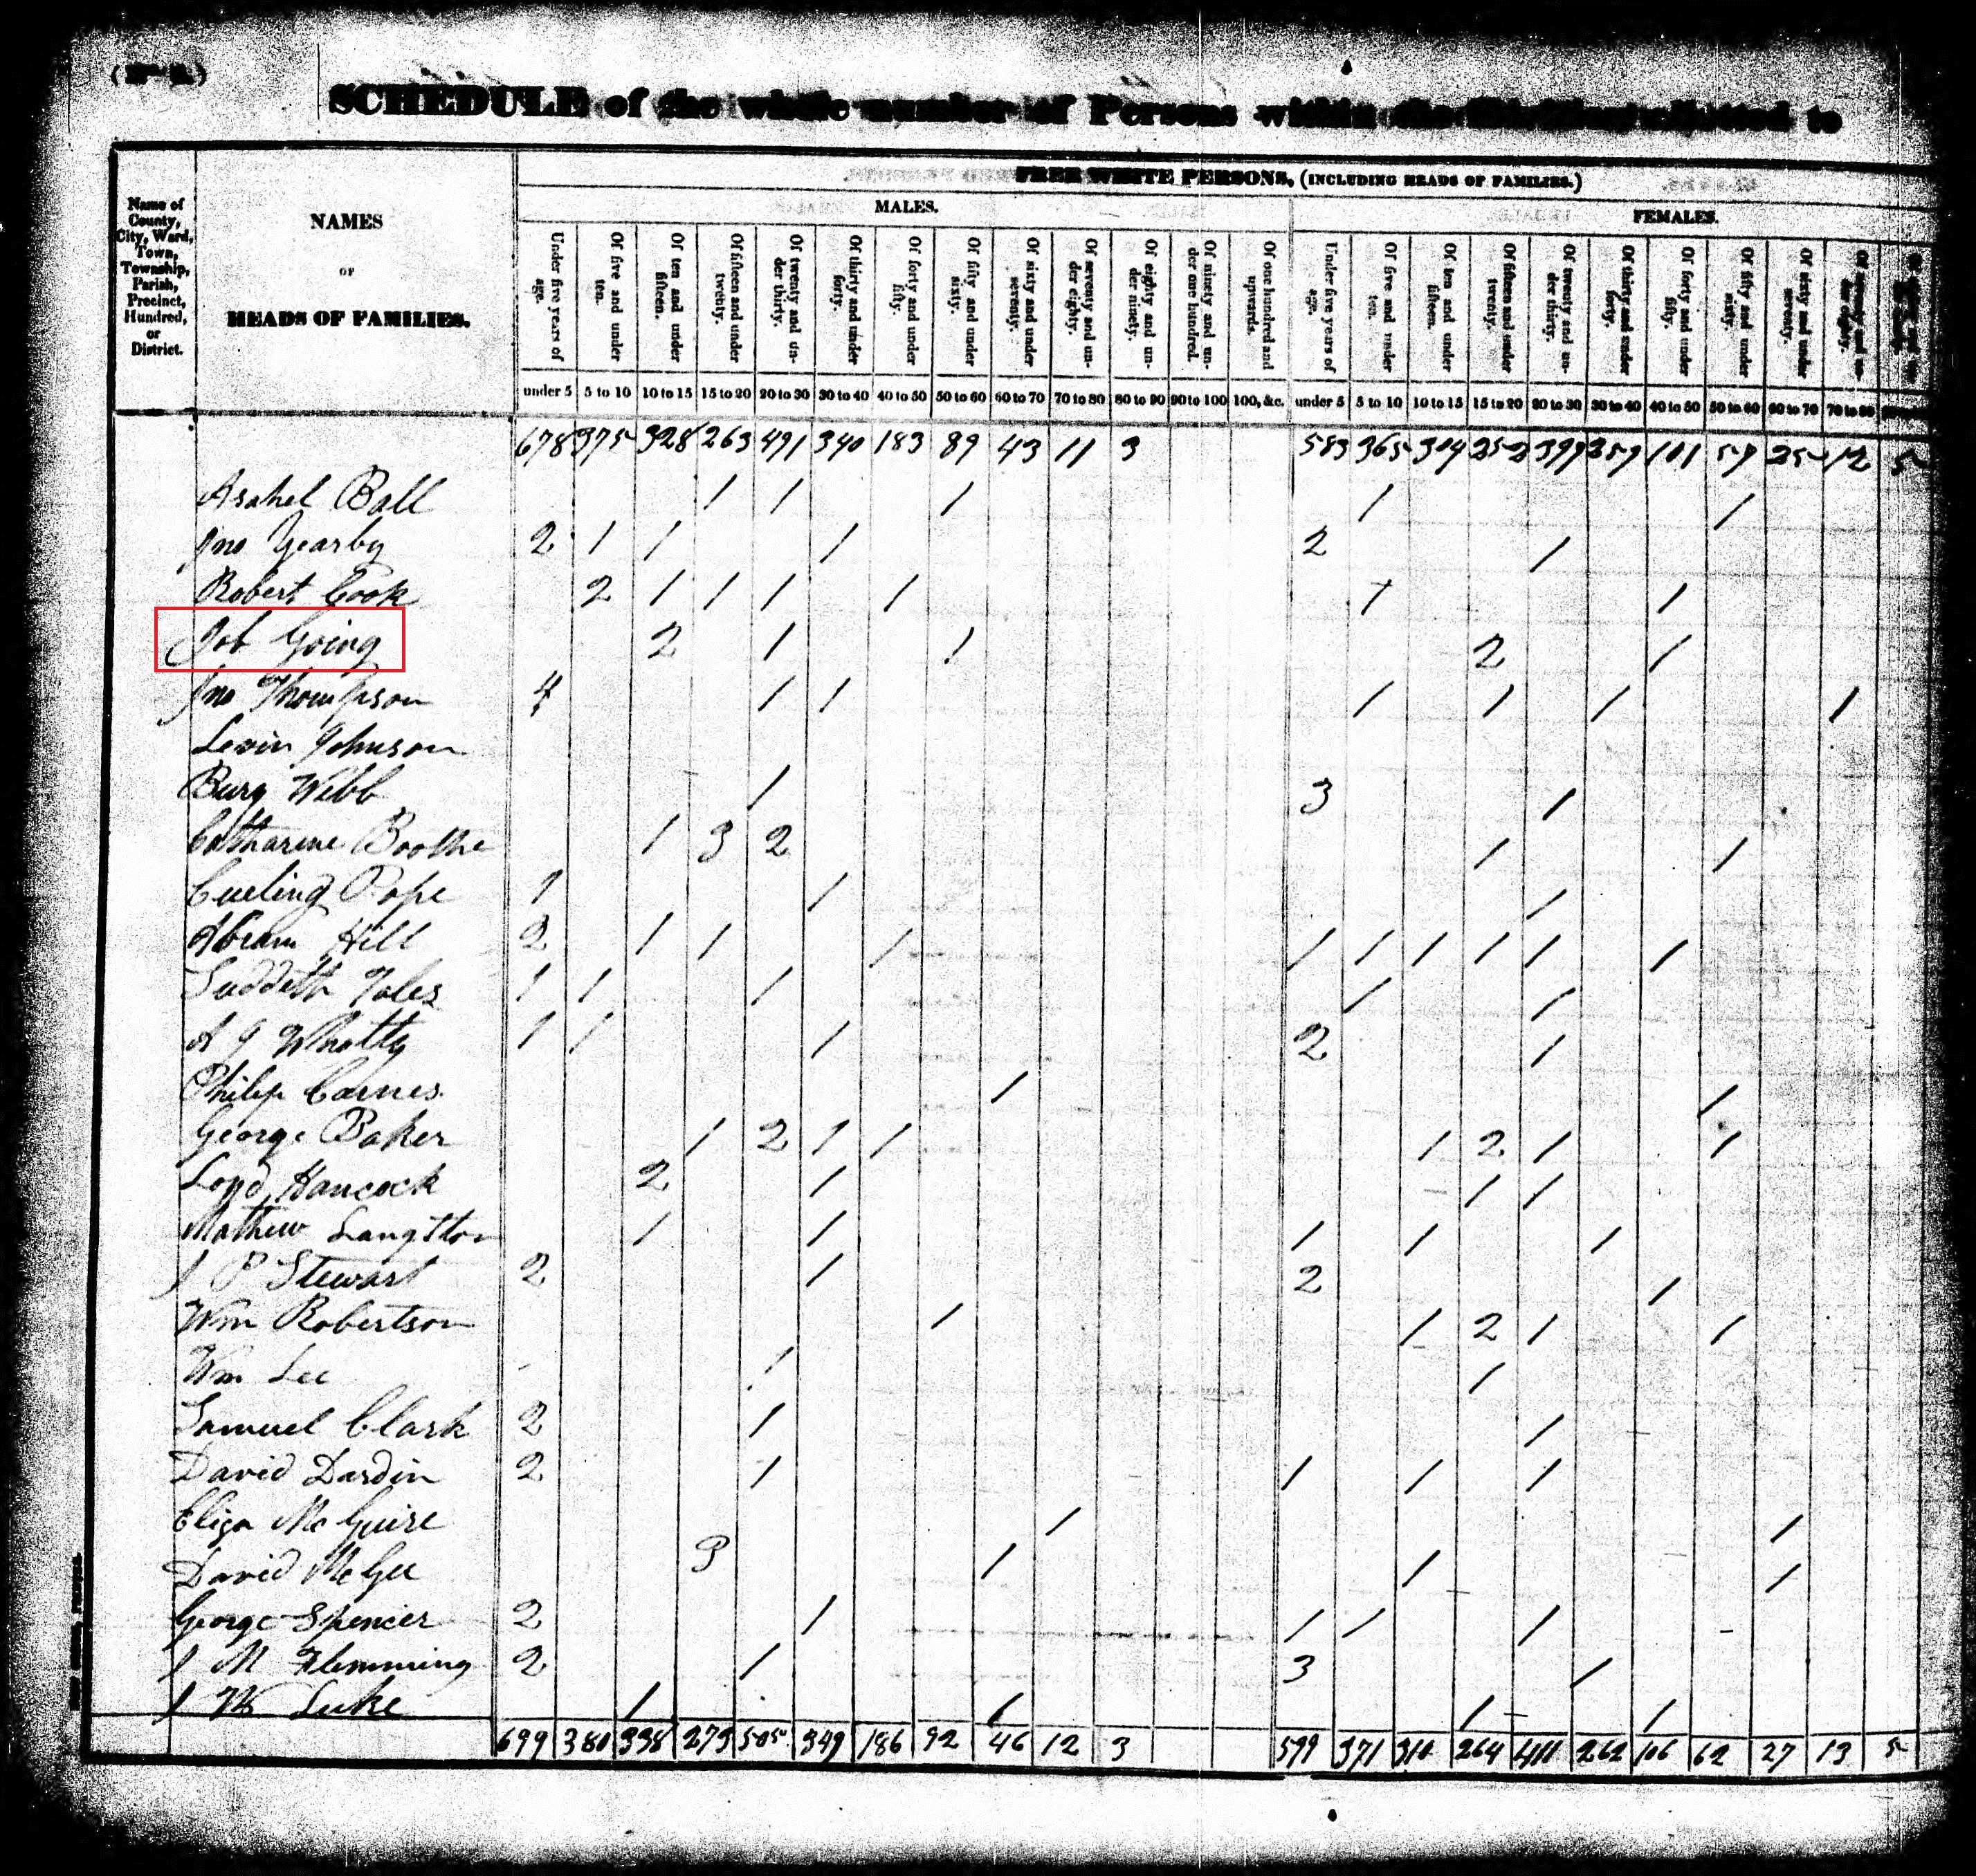 SCHEDULE of the whole number of Persons within the allotted to
Name of County, City, Ward, Town, Township, Parish, Precinct, Hundred, or District.
NAMES
OF
HEADS OF FAMILIES.
FREE WHITE PERSONS, (INCLUDING HEADS OF FAMILIES.)
MALES. FEMALES.
Under five years of age. Of five and under ten. Of ten and under fifteen. Of fifteen and under twenty. Of twenty and under thirty. Of thirty and under forty. Of forty and under fifty. Of fifty and under sixty. Of sixty and under seventy. Of seventy and under eighty. Of eighty and under ninety. Of ninety and under one hundred. Of one hundred and upwards. Under five years of age. Of five and under ten. Of ten and under fifteen. Of fifteen and under twenty. Of twenty and under thirty. Of thirty and under forty. Of forty and under fifty. Of fifty and under sixty. Of sixty and under seventy. Of seventy and under eighty.
under 5 5 to 10 10 to 15 15 to 20 20 to 30 30 to 40 40 to 50 50 to 60 60 to 70 70 to 80 80 to 90 90 to 100 100, &c. under 5 5 to 10 10 to 15 15 to 20 20 to 30 30 to 40 40 to 50 50 to 60 60 to 70 70 to 80
678 375 328 263 491 340 183 89 43 11 3 583 365 304 252 399 259 101 57 25 12 5
Asahel Ball 1 1 1 1 1
Jno Yearby 2 1 1 1 2 1
Robert Cook 2 1 1 1 1 1 1
Job Going 2 1 1 2 1
Jno Thompson 4 1 1 1 1 1 1
Levin Johnson
Burg Webb 1 3 1
Catharine Boothe 1 3 2 1 1
Cueling Pope 1 1 1
Abram Hill 2 1 1 1 1 1 1 1 1 1
Suddeth Toles 1 1 1 1 1
A J Whatty 1 1 1 2 1
Philip Carnes 1 1
George Baker 1 2 1 1 1 2 1 1
Loyd Hancock 2 1 1 1
Mathew Langston 1 1 1 1 1
J P Stewart 2 1 2 1
Wm Robertson 1 1 2 1 1
Wm Lee 1 1
Samuel Clark 2 1 1
David Dardin 2 1 1 1 1
Eliga McGuire 1 1
David McGee 3 1 1 1
George Spencer 2 1 1 1 1
J M Flemming 2 1 3 1
J W Luke 1 1 1 1
699 380 338 273 505 349 186 92 46 12 3 599 371 310 264 411 262 106 62 27 13 5